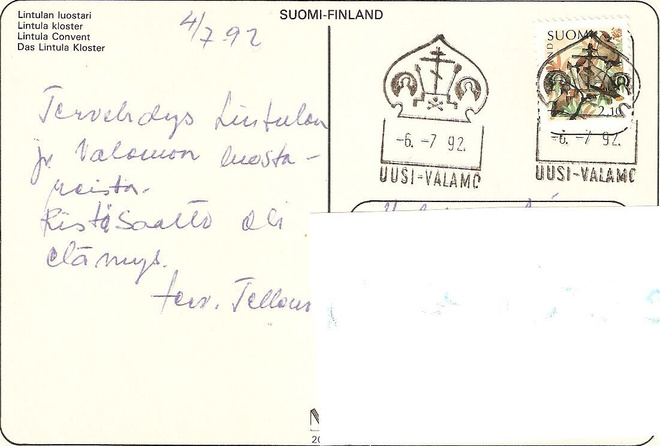 Lintulan luostari
Lintula kloster
Lintula Convent
Das Lintula Kloster
SUOMI-FINLAND
4/7 92
Tervehdys Lintulan
ja Valamon luosta-
reista.
Ristisaatto oli
elämys.
terv.
SUOMI
2.10
-6. -7 92.
UUSI-VALAMO
-6. -7 92.
UUSI-VALAMO